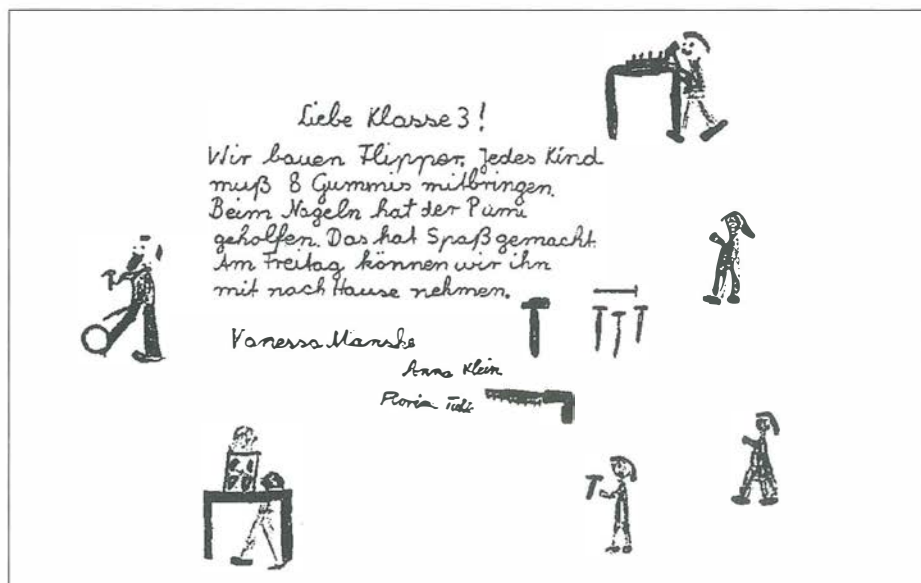 Liebe Klasse 3!
Wir bauen Flipper. Jedes Kind
muß 8 Gummis mitbringen.
Beim Nageln hat der Pumi
geholfen. Das hat Spaß gemacht.
Am Freitag können wir ihn
mit nach Hause nehmen.
Vanessa Manske
Anna Klein